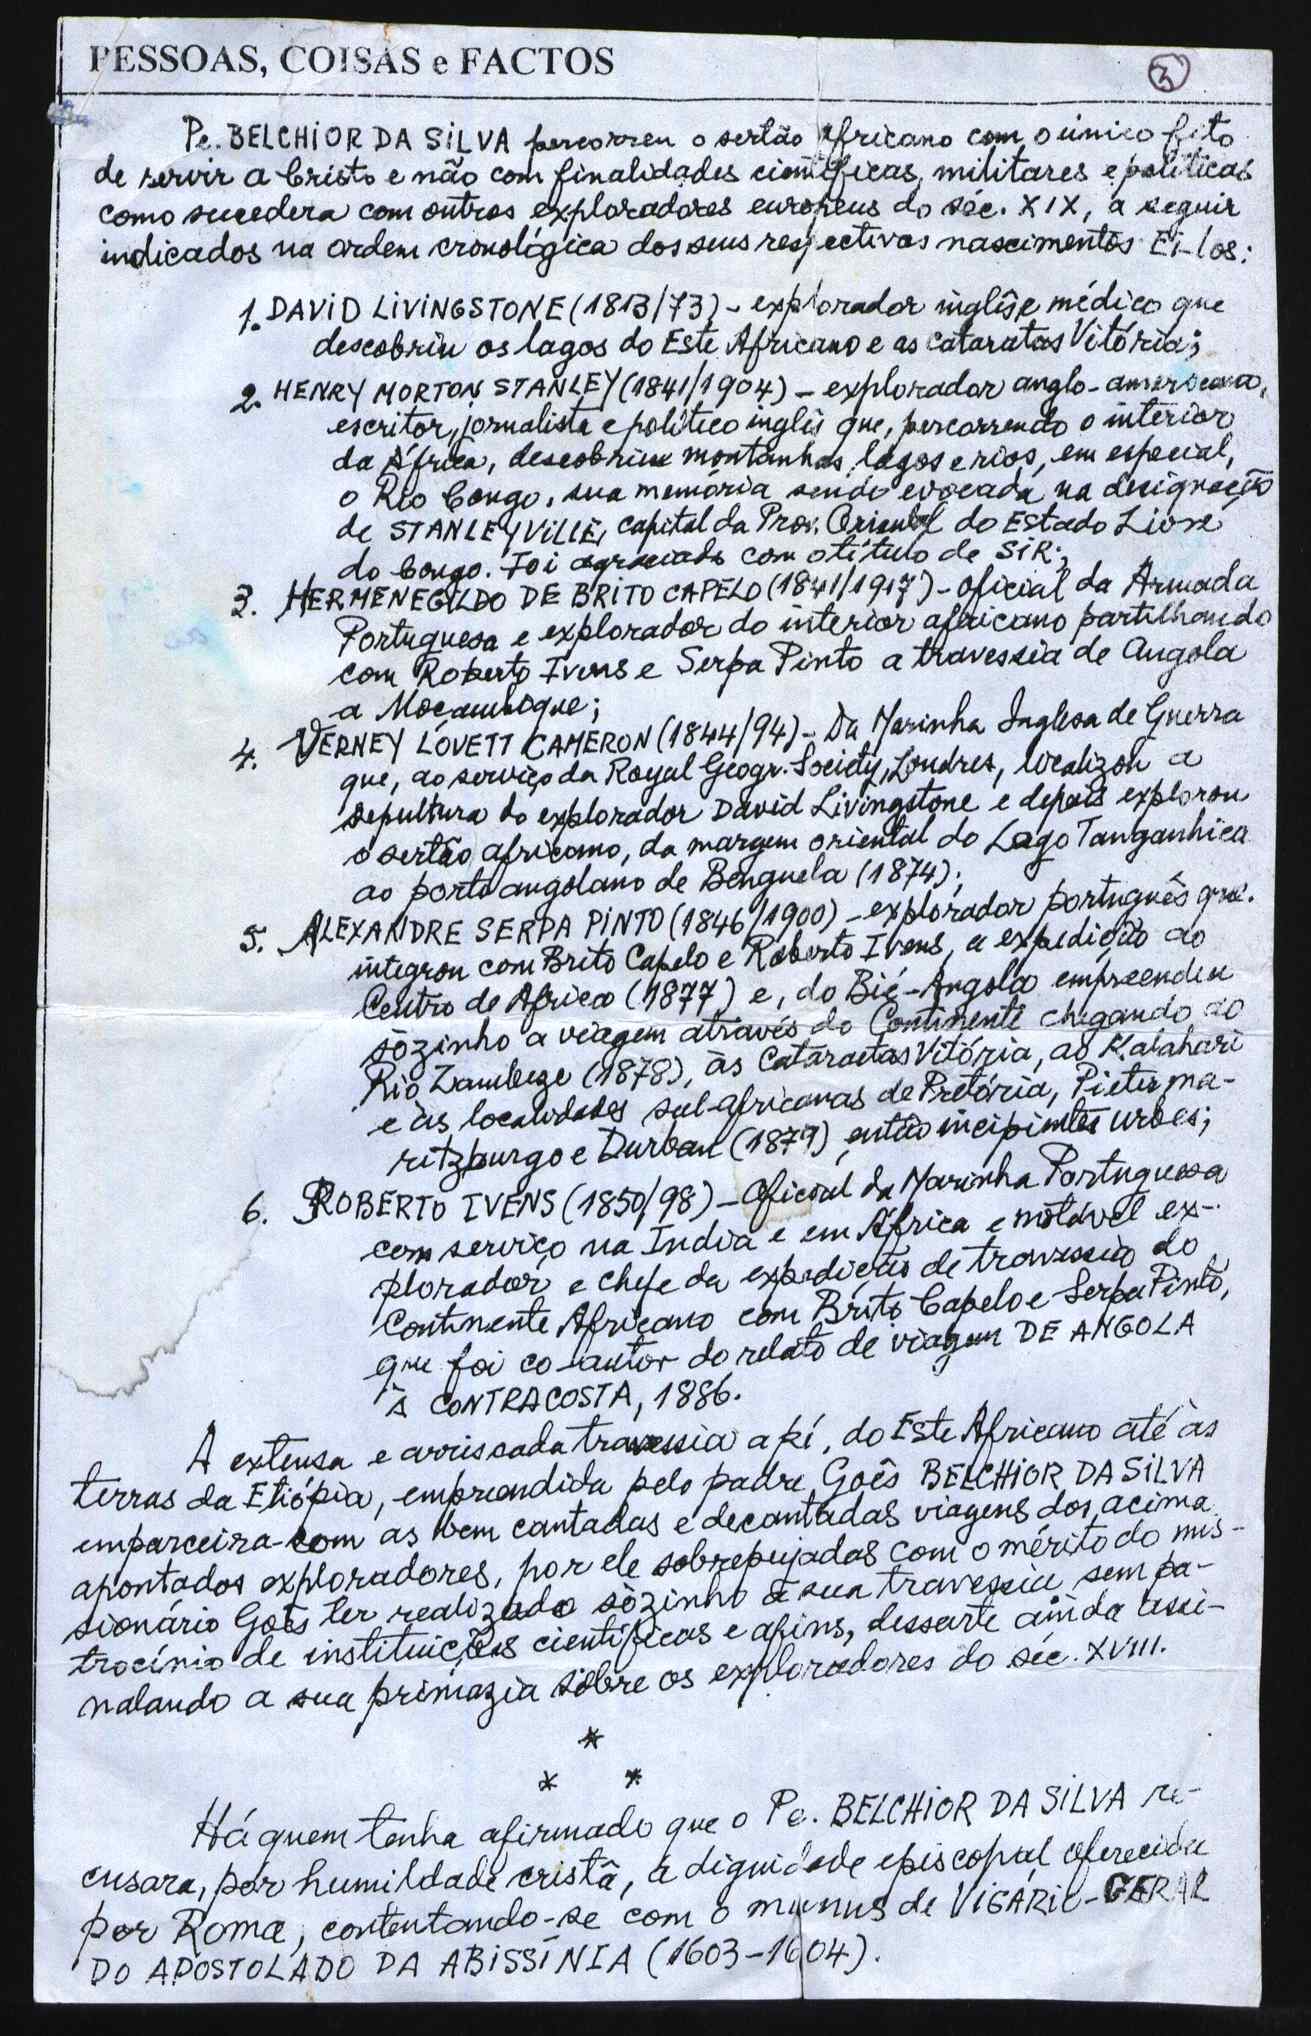 PESSOAS, COISAS e FACTOS
3
Pe. BELCHIOR DA SILVA percorreu o sertão africano com o único fito
de servir a Cristo e não com finalidades científicas, militares e políticas
como sucedera com outros exploradores europeus do séc. XIX, a seguir
indicados na ordem cronológica dos seus respectivos nascimentos. Ei-los:
1. DAVID LIVINGSTONE (1813/73) - explorador inglês e médico que
descobriu os lagos do Este Africano e as cataratas Vitória;
2. HENRY MORTON STANLEY (1841/1904) - explorador anglo-americano,
escritor, jornalista e político inglês que, percorrendo o interior
da África, descobriu montanhas, lagos e rios, em especial,
o Rio Congo, sua memória sendo evocada na designação
de STANLEYVILLE, capital da Prov. Oriental do Estado Livre
do Congo. Foi agraciado com o título de SIR;
3. HERMENEGILDO DE BRITO CAPELO (1841/1917) - Oficial da Armada
Portuguesa e explorador do interior africano partilhando
com Roberto Ivens e Serpa Pinto a travessia de Angola
a Moçambique;
4. VERNEY LOVETT CAMERON (1844/94) - Da Marinha Inglesa de Guerra
que, ao serviço da Royal Geogr. Society, Londres, localizou a
sepultura do explorador David Livingstone e depois explorou
o sertão africano, da margem oriental do Lago Tanganhica
ao porto angolano de Benguela (1874);
5. ALEXANDRE SERPA PINTO (1846/1900) - explorador português que
integrou com Brito Capelo e Roberto Ivens, a expedição ao
Centro de África (1877) e, do Bié-Angola empreendeu
sòzinho a viagem através do Continente chegando ao
Rio Zambeze (1878), às Cataractas Vitória, ao Kalahari
e às localidades sul-africanas de Pretória, Pieterma-
ritzburgo e Durban (1879), então incipientes urbes;
6. ROBERTO IVENS (1850/98) - Oficial da Marinha Portuguesa
com serviço na Índia e em África e notável ex-
plorador e chefe da expedição de travessia do
Continente Africano com Brito Capelo e Serpa Pinto,
que foi co-autor do relato de viagem DE ANGOLA
À CONTRACOSTA, 1886.
A extensa e arriscada travessia a pé, do Este Africano até às
terras da Etiópia, empreendida pelo padre Goês BELCHIOR DA SILVA
emparceira-com as bem cantadas e decantadas viagens dos acima
apontados exploradores, por ele sobrepujadas com o mérito do mis-
sionário Goês ter realizado sòzinho a sua travessia sem pa-
trocínio de instituições científicas e afins, dessarte ainda assi-
nalando a sua primazia sôbre os exploradores do séc. XVIII.
*
* *
Há quem tenha afirmado que o Pe. BELCHIOR DA SILVA re-
cusara, por humildade cristã, a dignidade episcopal oferecida
por Roma, contentando-se com o munus de VIGÁRIO-GERAL
DO APOSTOLADO DA ABISSÍNIA (1603-1604).